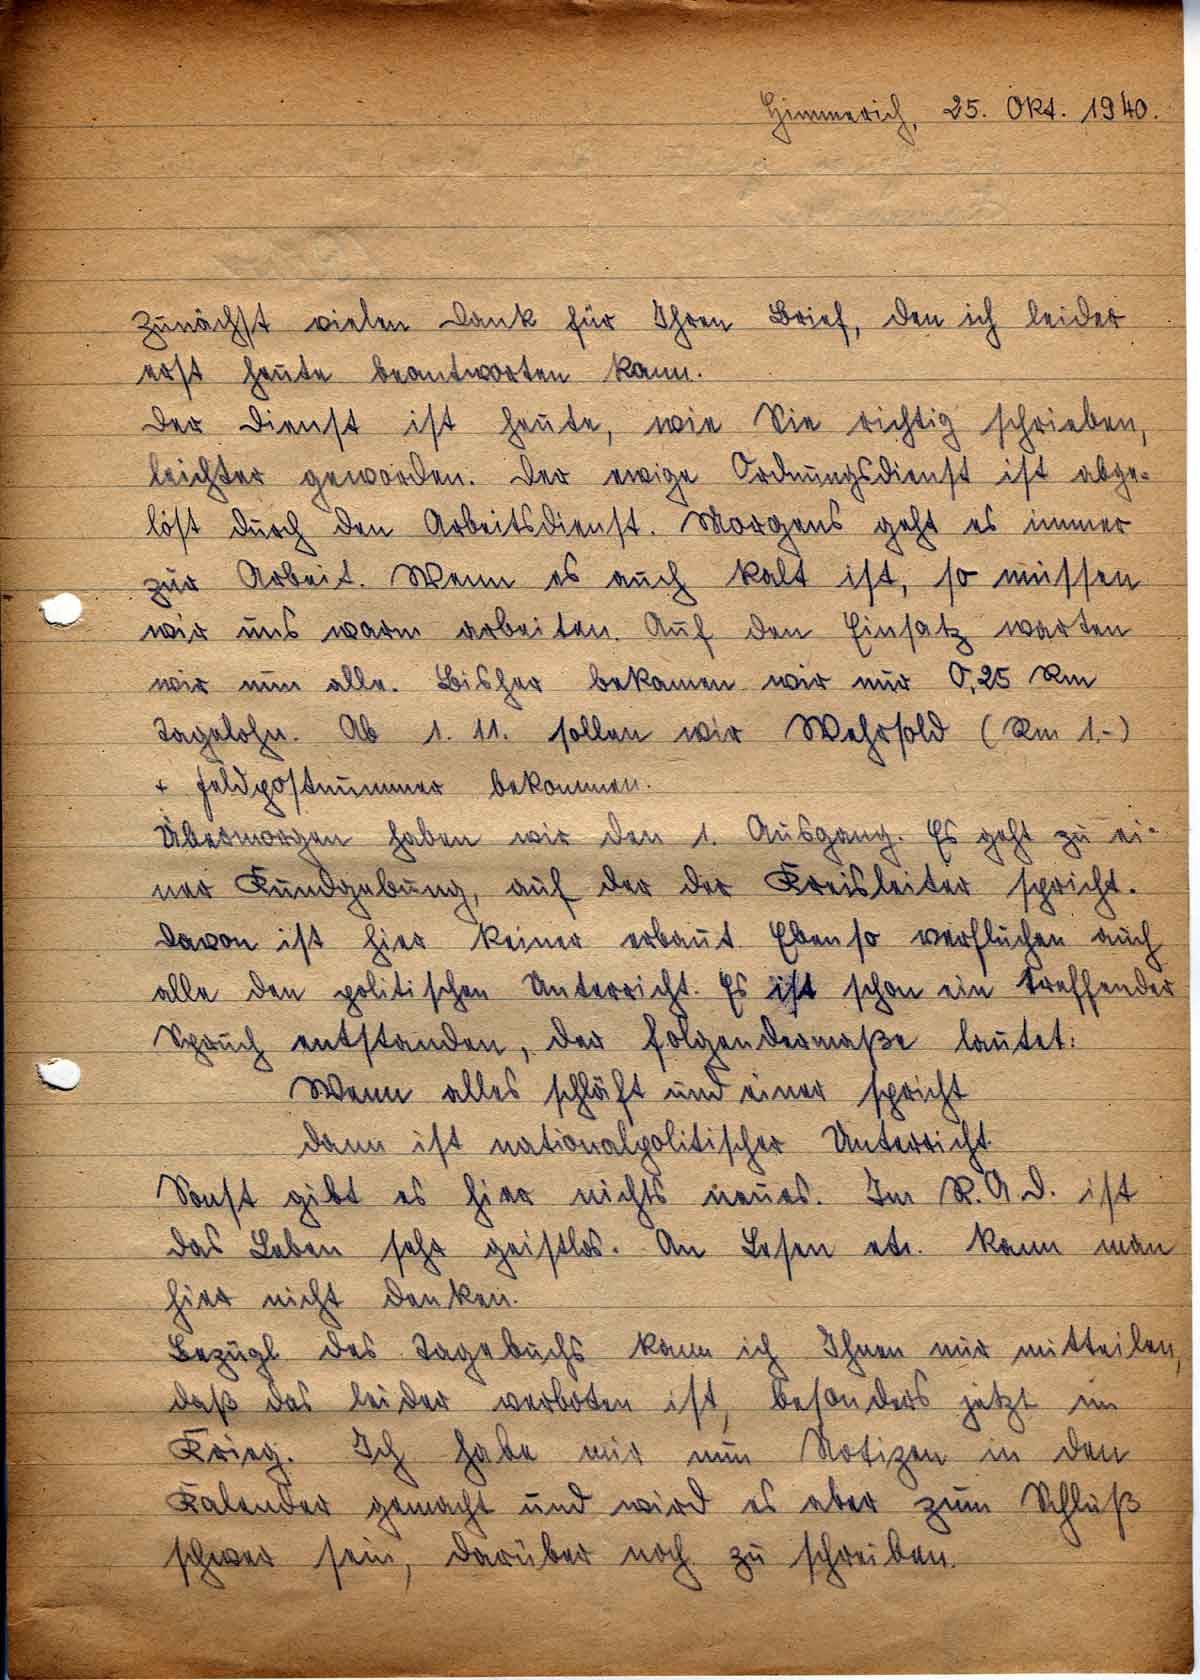 Himmerich, 25. Okt. 1940.
Zunächst vielen Dank für Ihren Brief, den ich leider
erst heute beantworten kann.
Der Dienst ist heute, wie Sie richtig schrieben,
leichter geworden. Der ewige Ordnungsdienst ist abge-
löst durch den Arbeitsdienst. Morgens geht es immer
zur Arbeit. Wenn es auch kalt ist, so müssen
wir uns warm arbeiten. Auf den Einsatz warten
wir nun alle. Bisher bekamen wir nur 0,25 Rm
Tagelohn. Ab 1. 11. sollen wir Wehrsold (Rm 1.-)
+ Feldpostnummer bekommen.
Übermorgen haben wir den 1. Ausgang. Es geht zu ei-
ner Kundgebung, auf der der Kreisleiter spricht.
Davon ist hier keiner erbaut. Ebenso verfluchen auch
alle den politischen Unterricht. Es ist schon ein treffender
Spruch entstanden, der folgendermaße lautet:
Wenn alles schläft und einer spricht
dann ist nationalpolitischer Unterricht.
Sonst gibt es hier nichts neues. Im R.A.D. ist
das Leben sehr geistlos. An Lesen etc. kann man
hier nicht denken.
Bezügl. des Tagebuchs kann ich Ihnen nur mitteilen,
daß das leider verboten ist, besonders jetzt im
Krieg. Ich habe mir nun Notizen in den
Kalender gemacht und wird es aber zum Schluß
schwer sein, darüber noch zu schreiben.